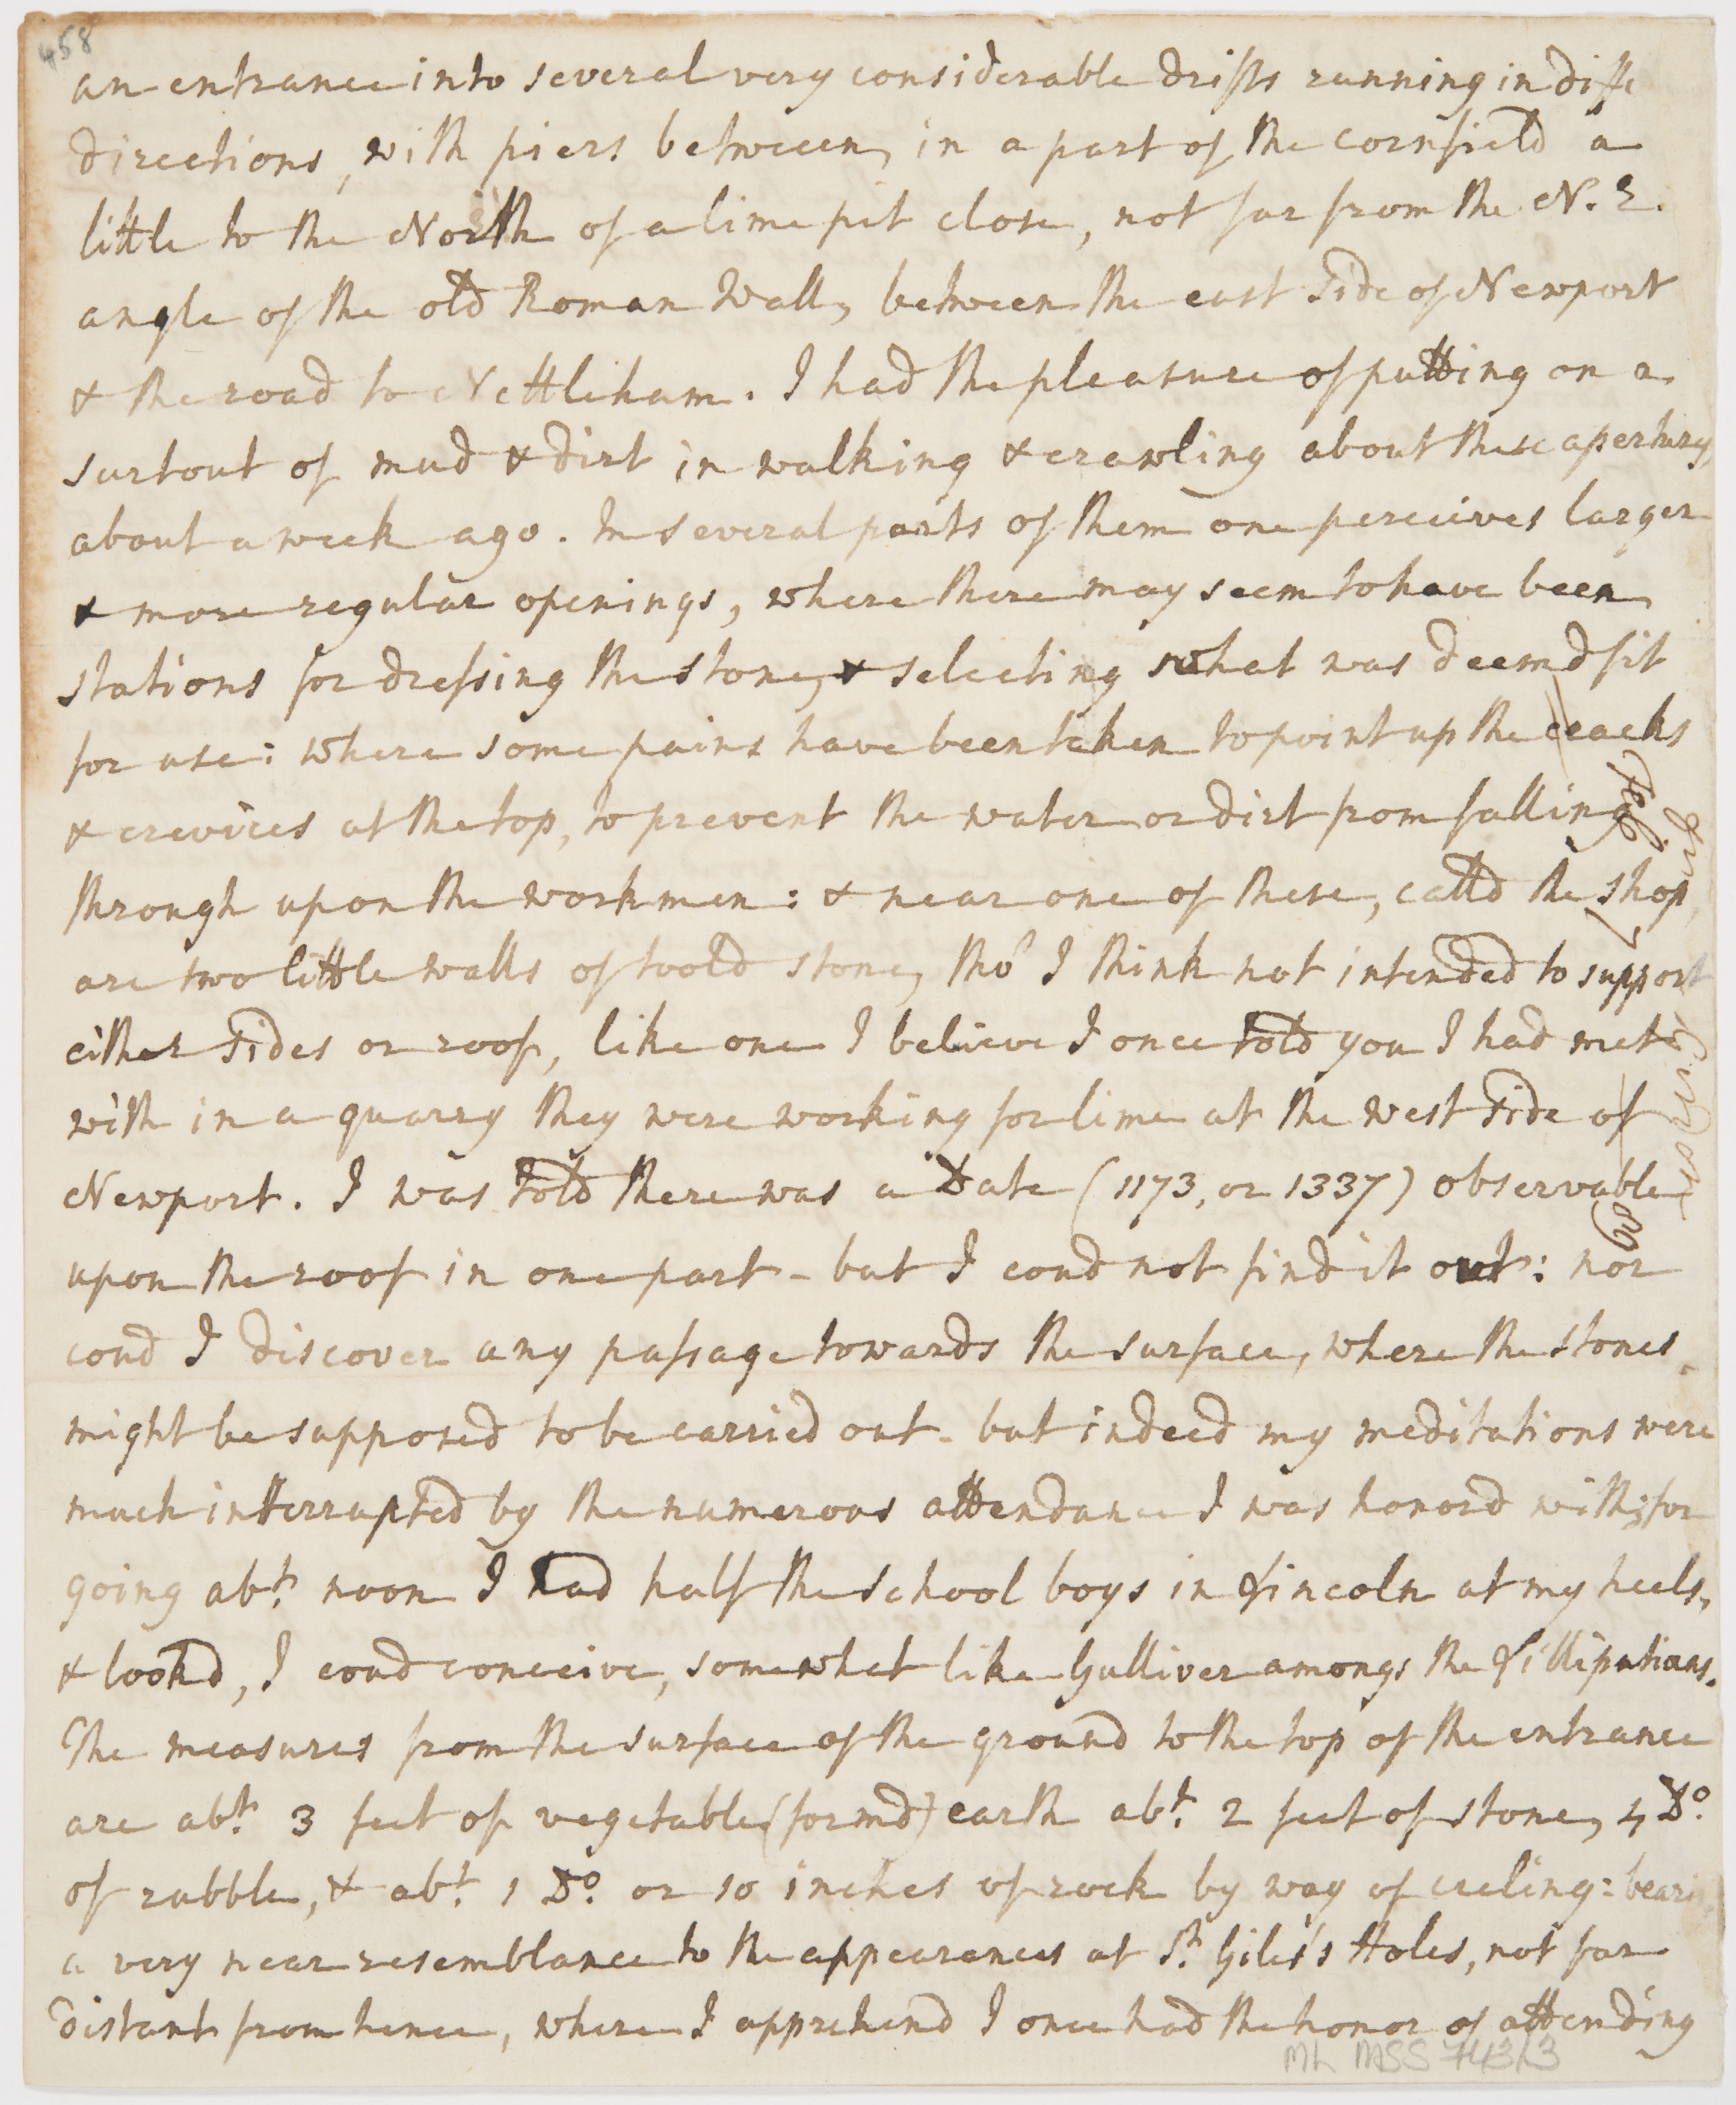 458
an entrance into several very considerable drifts running in diffe
directions, with piers between, in a part of the cornfield a
little to the North of a lime pit close, not far from the N. E.
angle of the old Roman Wall, between the east side of Newport
& the road to Nettleham. I had the pleasure of putting on a
surtout of mud & dirt in walking & crawling about these apertures,
about a week ago. In several parts of them one perceives larger
& more regular openings, where there may seem to have been
stations for dressing the stone, & selecting what was deemd fit
for use: where some pains have been taken to point up the cracks
& crevices at the top, to prevent the water or dirt from falling
through upon the workmen: & near one of these, calld the shop,
are two little walls of toold stone, tho' I think not intended to support
either sides or roof, like one I believe I once told you I had mett
with in a quarry they were working for lime at the west side of
Newport. I was told there was a Date (1173, or 1337) observable
upon the roof in one part - but I coud not find it out: nor
coud I discover any passage towards the surface, where the stones
might be supposed to be carried out - but indeed my meditations were
much interrupted by the numerous attendance I was honord with; for
going abt. noon I had half the school boys in Lincoln at my heels,
& lookd, I coud conceive, somewhat like Gulliver amongs the Lillipatians.
The measures from the surface of the ground to the top of the entrance
are abt. 3 feet of vegetable (formd) earth abt. 2 feet of stone, 4 Do.
of rubble, & abt. 1 Do. or 10 inches of rock by way of cieling: bearin
a very near resemblance to the appearences at St. Giles's Holes, not far
distant from hence, where I apprehend I once had the honor of attending
ML MSS 7431/3